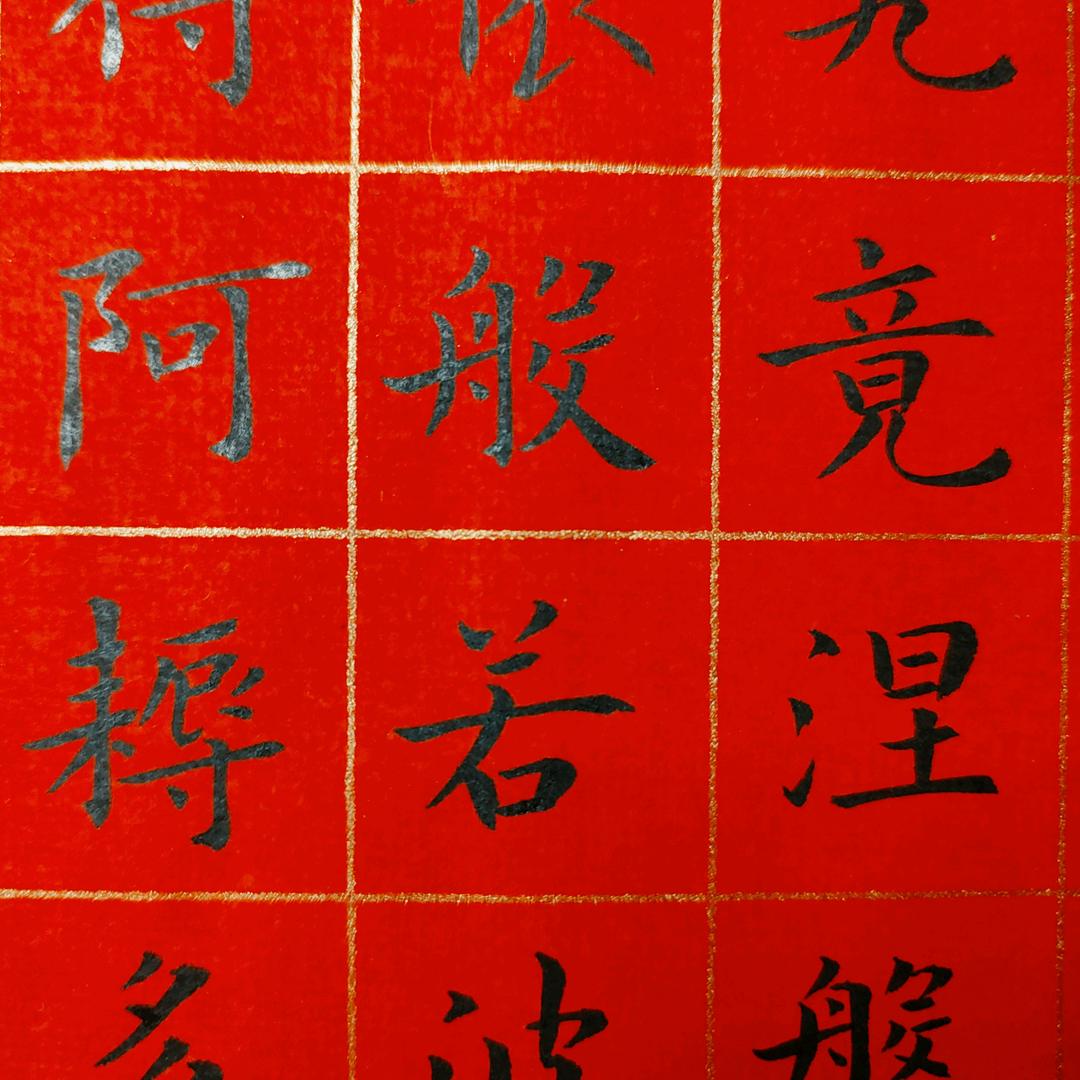 究竟涅槃
依般若波
得阿耨多